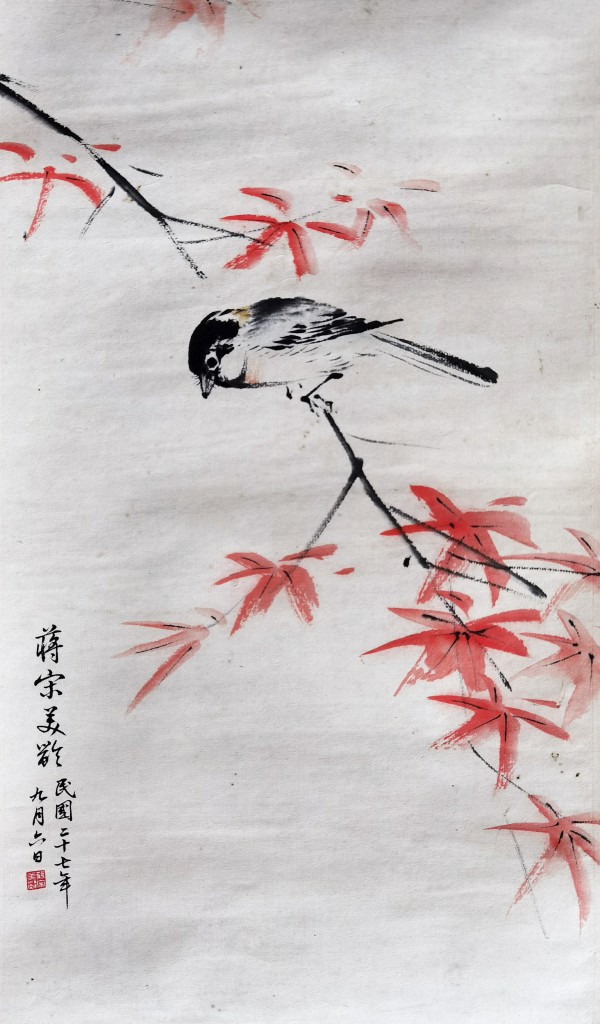 蔣宋美齡
民國二十七年
九月六日